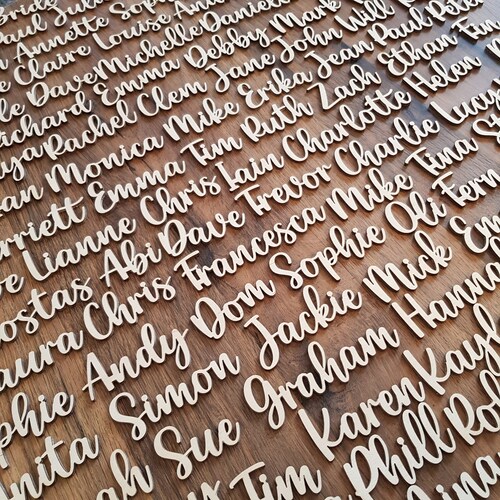 Annette Sop Louise
Claire
Dave Michelle Danielle
Richard Emma Debby Mark
Rachel Clem Jane John Will
Monica Mike Erika Jean Paul Peter
Emma Tim Ruth Zach Ethan Tim
Harriett Lianne Chris Iain Charlotte Helen
Abi Dave Trevor Charlie Lucy
Costas Chris Francesca Mike Tina
Laura Andy Dom Sophie Oli Fern
Sophie Simon Jackie Mick Em
Anita Sue Graham Hanna
Tim Karen Kayl
Phill Ro